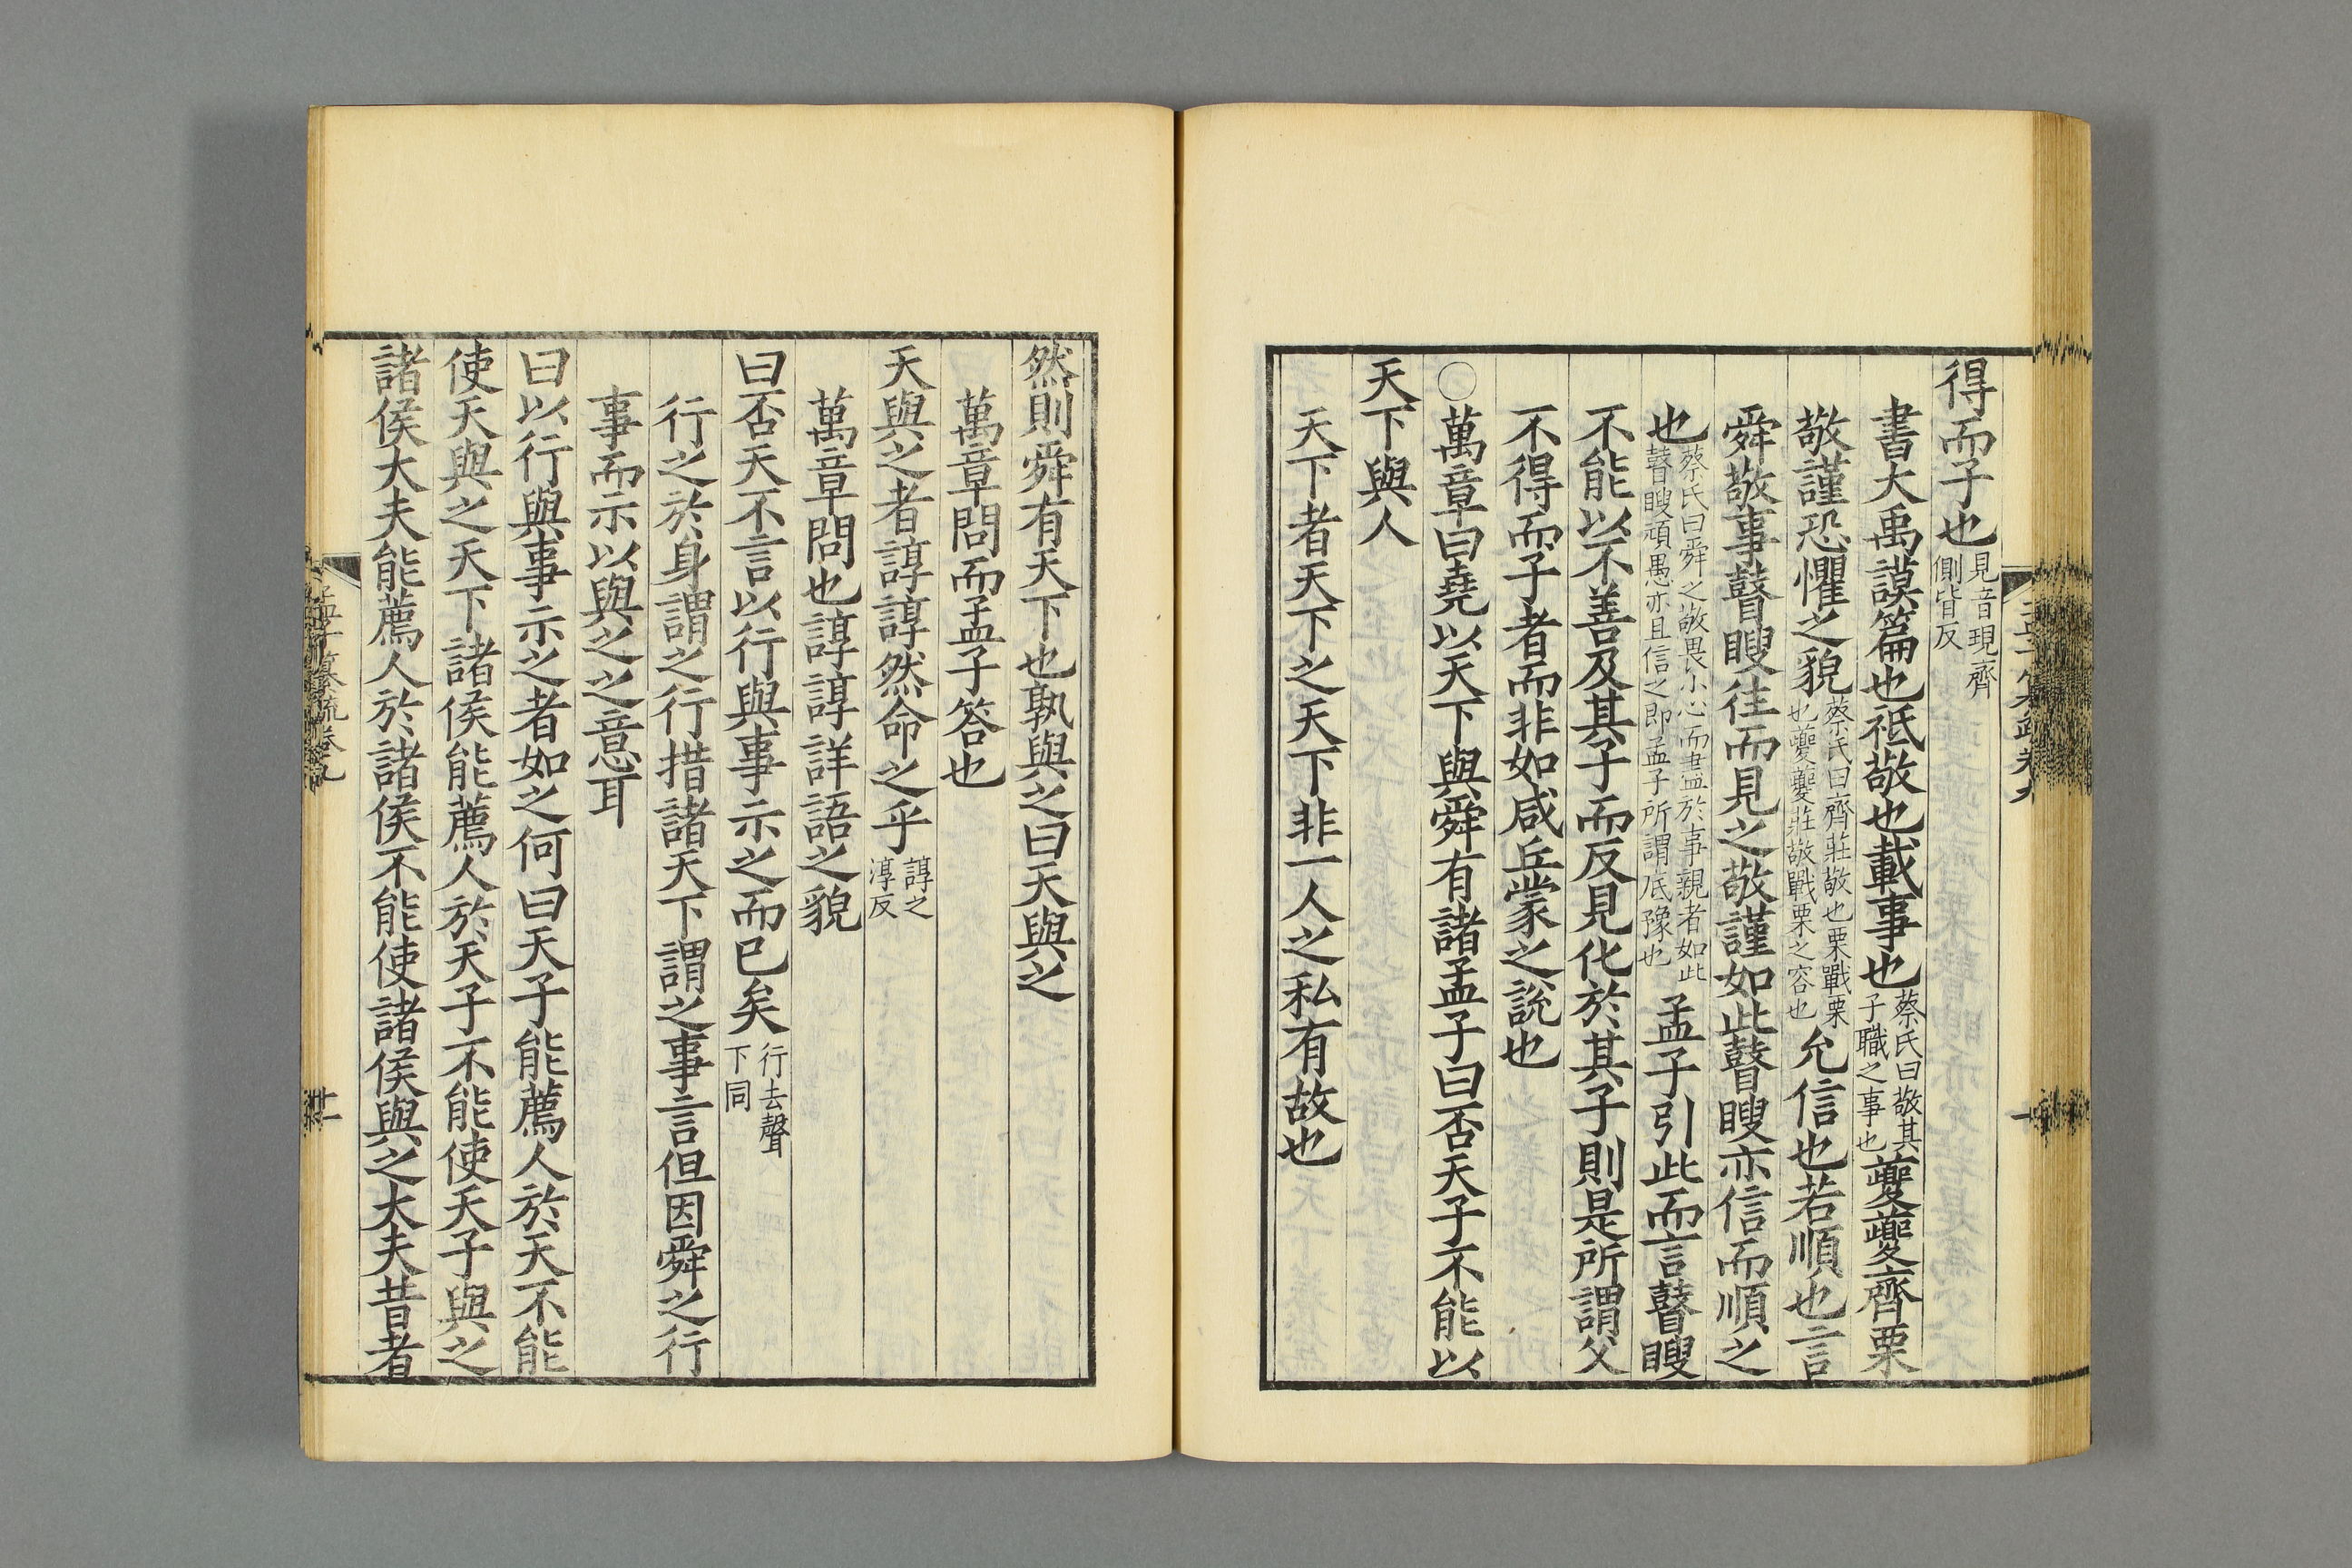 得而子也見音現齊側皆反
書大禹謨篇也祗敬也載事也蔡氏曰敬其子職之事也夔夔齊栗
敬謹恐懼之貌蔡氏曰齊莊敬也栗戰栗也夔夔莊敬戰栗之容也允信也若順也言
舜敬事瞽瞍往而見之敬謹如此瞽瞍亦信而順之
也蔡氏曰舜之敬畏小心而盡於事親者如此瞽瞍頑愚亦且信之即孟子所謂厎豫也孟子引此而言瞽瞍
不能以不善及其子而反見化於其子則是所謂父
不得而子者而非如咸丘蒙之說也
○萬章曰堯以天下與舜有諸孟子曰否天子不能以
天下與人
天下者天下之天下非一人之私有故也
然則舜有天下也孰與之曰天與之
萬章問而孟子答也
天與之者諄諄然命之乎諄之淳反
萬章問也諄諄詳語之貌
曰否天不言以行與事示之而已矣行去聲下同
行之於身謂之行措諸天下謂之事言但因舜之行
事而示以與之之意耳
曰以行與事示之者如之何曰天子能薦人於天不能
使天與之天下諸侯能薦人於天子不能使天子與之
諸侯大夫能薦人於諸侯不能使諸侯與之大夫昔者
孟子纂疏卷九